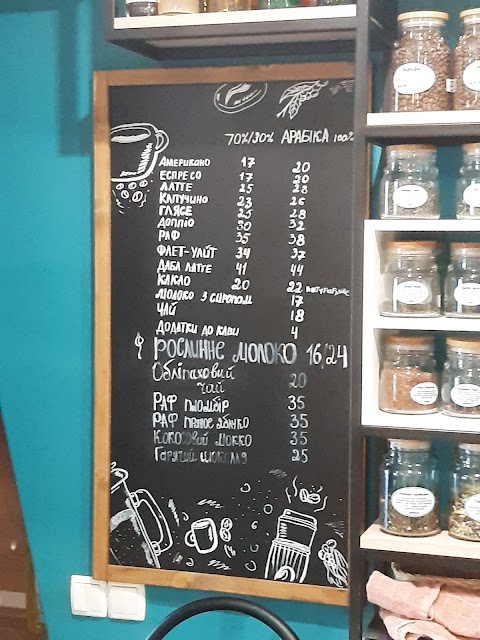 70%/30% АРАБІКА 100%
Американо 17 20
Еспресо 17 20
Латте 25 28
Капучино 23 26
Глясе 25 28
Доппіо 30 32
Раф 35 38
Флет-уайт 34 37
Дабл латте 41 44
Какло 20 22
Молоко з сиропом 17
Чай 18
Додатки до кави 4
Рослинне молоко 16/24
Обліпиховий
чай 20
Раф пломбір 35
Раф пряне яблуко 35
Кокосовий мокко 35
Гарячий шоколад 25